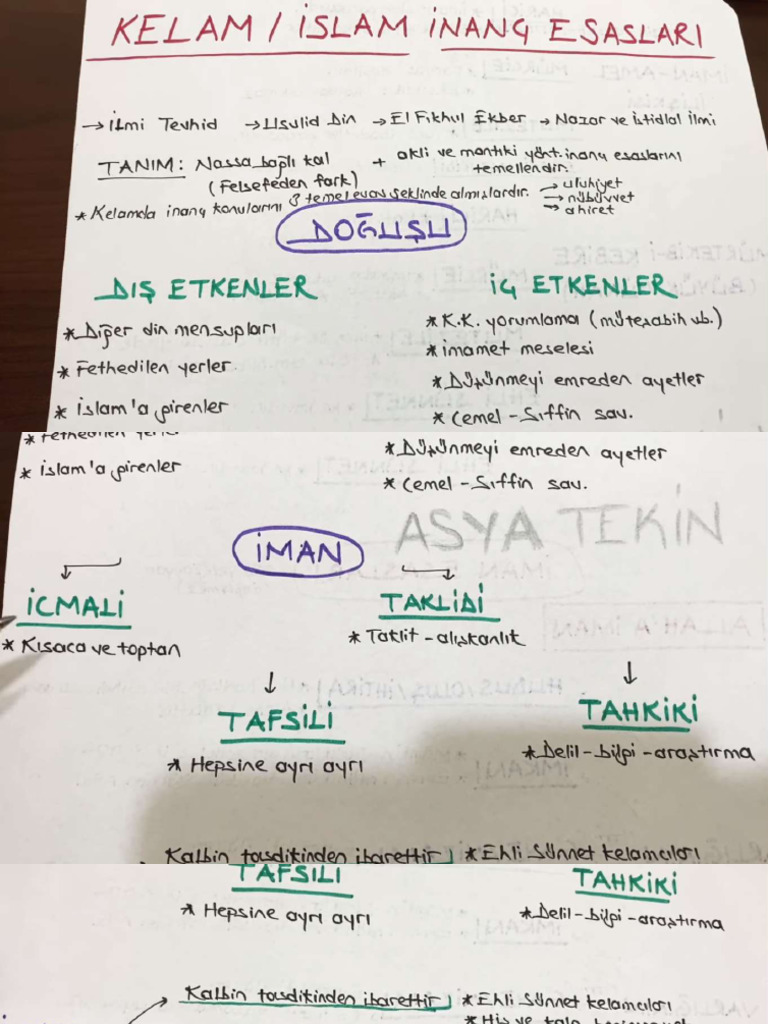 KELAM / İSLAM İNANÇ ESASLARI
→ İlmi Tevhid → Usulid Din → El Fıkhul Ekber → Nazar ve İstidlal İlmi
TANIM: Nassa bağlı kal + akli ve mantıki yönt. inanç esaslarını
(Felsefeden fark) temellendir.
* Kelamda inanç konularını 3 temel evan şeklinde almışlardır. → uluhiyet
→ nübüvvet
→ ahiret
DOĞUŞU
DIŞ ETKENLER
* Diğer din mensupları
* Fethedilen yerler
* İslam'a girenler
İÇ ETKENLER
* K.K. yorumlama (müteşabih vb.)
* imamet meselesi
* Düşünmeyi emreden ayetler
* Cemel - Sıffin sav.
* Fethedilen yerler
* İslam'a girenler
* Düşünmeyi emreden ayetler
* Cemel - Sıffin sav.
ASYA TEKİN
İMAN
İCMALİ
* Kısaca ve toptan
TAKLİDİ
* Taklit - alışkanlık
TAFSİLİ
* Hepsine ayrı ayrı
TAHKİKİ
* Delil - bilgi - araştırma
Kalbin tasdikinden ibarettir * Ehli Sünnet kelamcıları
TAFSİLİ
* Hepsine ayrı ayrı
TAHKİKİ
* Delil - bilgi - araştırma
→ Kalbin tasdikinden ibarettir * Ehli Sünnet kelamcıları